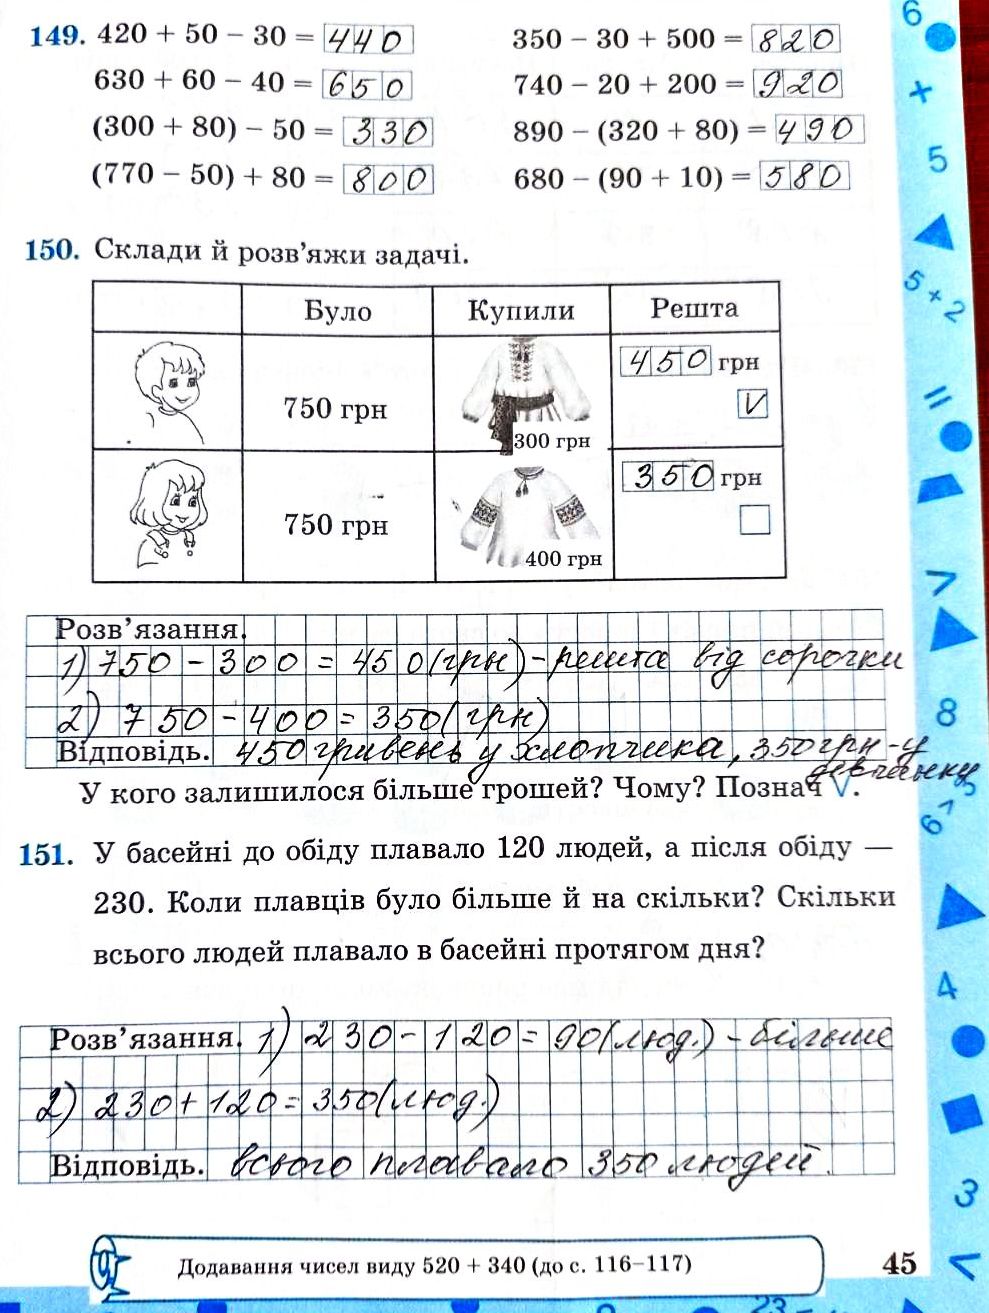 149. 420 + 50 − 30 = 440 350 − 30 + 500 = 820
630 + 60 − 40 = 650 740 − 20 + 200 = 920
(300 + 80) − 50 = 330 890 − (320 + 80) = 490
(770 − 50) + 80 = 800 680 − (90 + 10) = 580
150. Склади й розв’яжи задачі.
Було Купили Решта
750 грн 300 грн 450 грн V
750 грн 400 грн 350 грн
Розв’язання.
1) 750 - 300 = 450 (грн) - решта від сорочки
2) 750 - 400 = 350 (грн)
Відповідь. 450 гривень у хлопчика, 350 грн - у
дівчинки
У кого залишилося більше грошей? Чому? Познач V.
151. У басейні до обіду плавало 120 людей, а після обіду —
230. Коли плавців було більше й на скільки? Скільки
всього людей плавало в басейні протягом дня?
Розв’язання. 1) 230 - 120 = 90 (люд.) - більше
2) 230 + 120 = 350 (люд.)
Відповідь. всього плавало 350 людей.
Додавання чисел виду 520 + 340 (до с. 116–117)
45
6
+
5
5 × 2
=
>
8
6 > 5
4
3
<
23